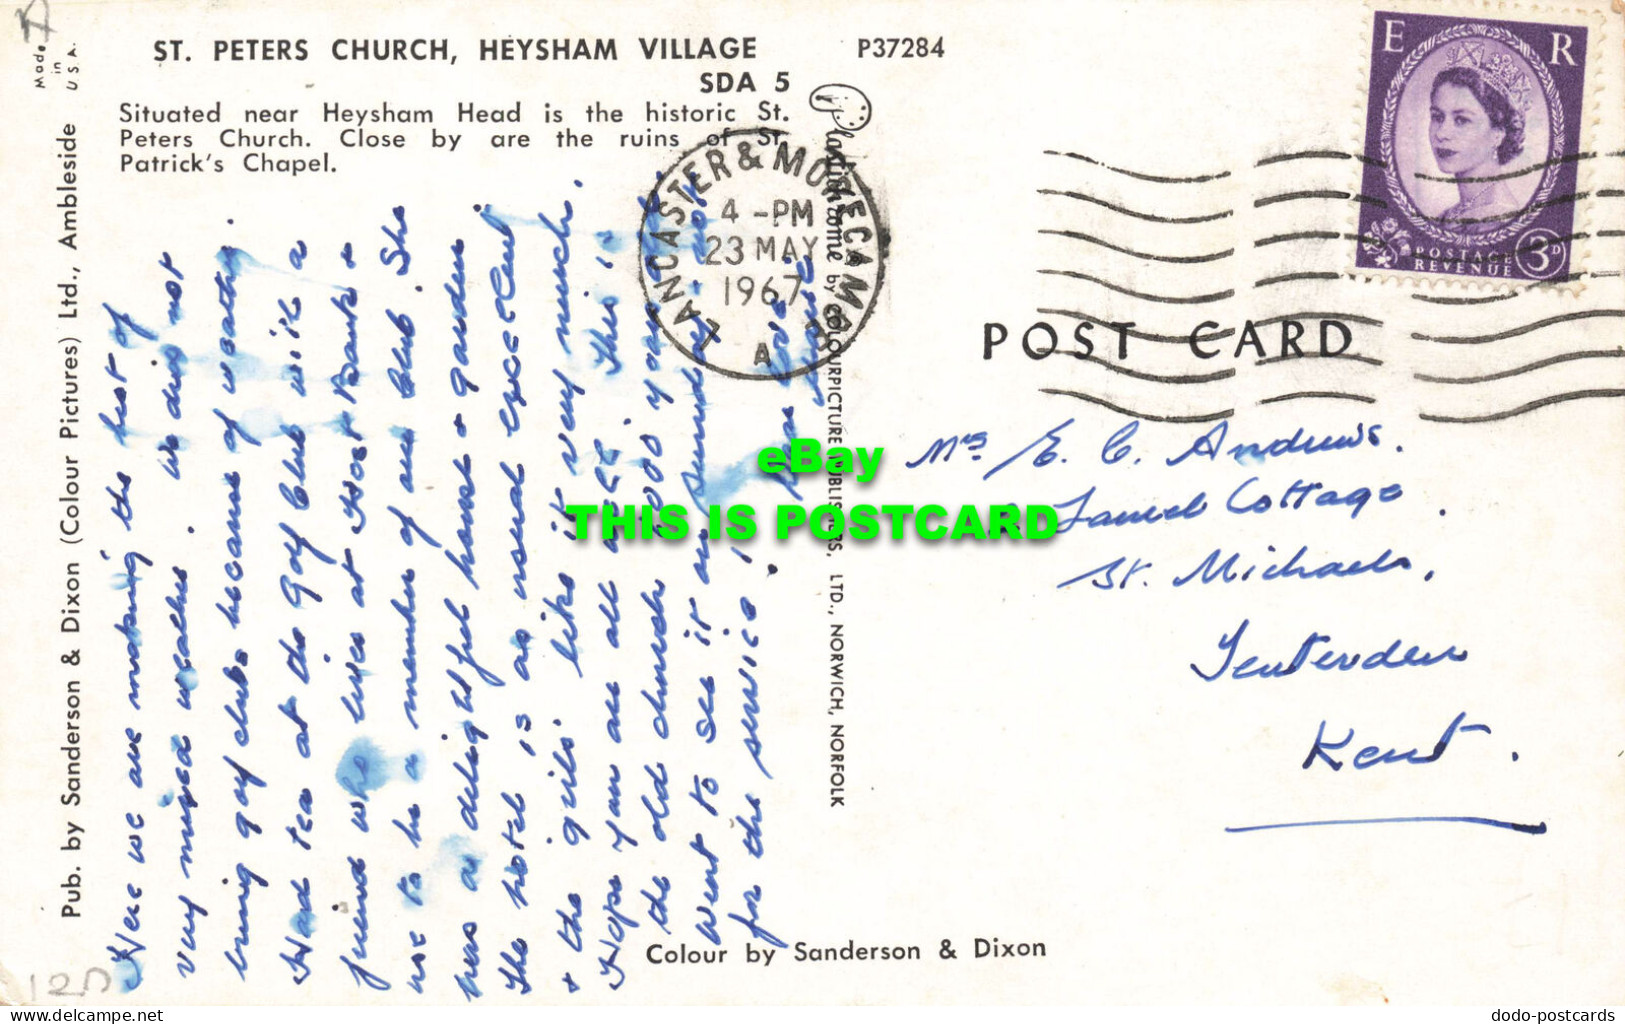 ST. PETERS CHURCH, HEYSHAM VILLAGE
SDA 5
P37284
Situated near Heysham Head is the historic St.
Peters Church. Close by are the ruins of St.
Patrick's Chapel.
Made in U.S.A.
Pub. by Sanderson & Dixon (Colour Pictures) Ltd., Ambleside
Here we are making the best of
very mixed weather. We did not
bring golf clubs because of weather.
Had tea at the golf club with a
friend who lives at Host Bank &
use to be a member of our club. She
has a delightful house & garden
The hotel is as usual excellent
& the girls like it very much.
Hope you are all well. This is
the old church 1,000 years old.
Went to see it on Sunday - took
for the service.
Dear love
LANCASTER & MORECAMBE
4 - PM
23 MAY
1967
A
Plastichrome by COLOURPICTURE PUBLISHERS, LTD., NORWICH, NORFOLK
E R
POSTAGE
REVENUE
3D
POST CARD
Mrs E. C. Andrews.
Laurel Cottage.
St. Michaels,
Tenterden
Kent.
eBay
THIS IS POSTCARD
Colour by Sanderson & Dixon
12D
This is a genuine postcard for sale on delcampe.net
dodo-postcards